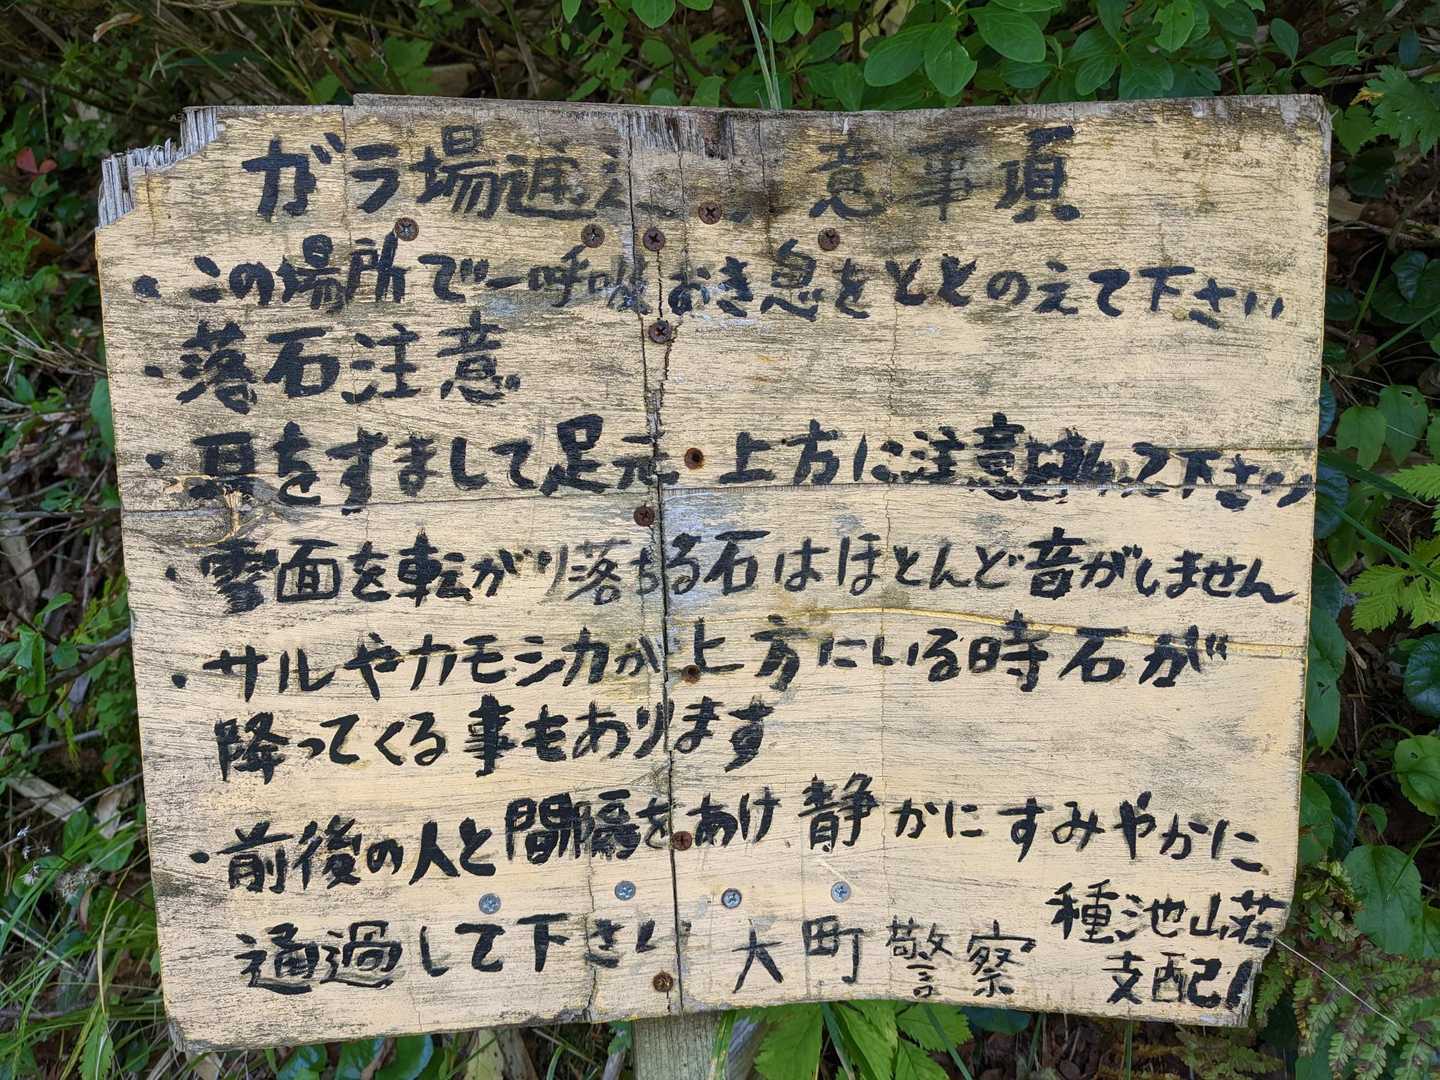 ガラ場通 意事項
・この場所で一呼吸おき息をととのえて下さい
・落石注意
・耳をすまして足元 上方に注意 下さい
・雪面を転がり落ちる石はほとんど音がしません
・サルやカモシカが上方にいる時石が
降ってくる事もあります
・前後の人と間隔をあけ静かにすみやかに
通過して下さい 大町警察
種池山荘
支配